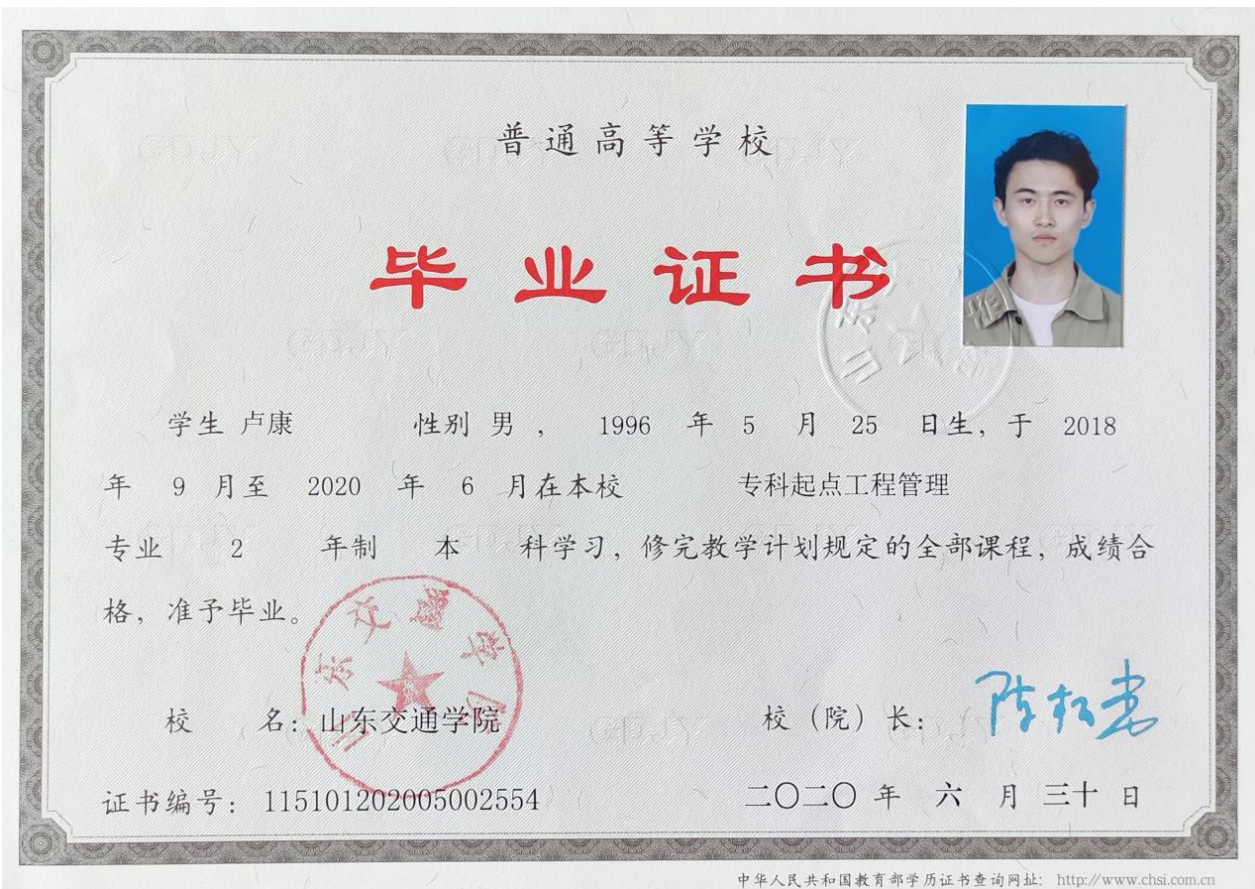 普通高等学校
毕业证书
学生 卢康 性别 男 ， 1996 年 5 月 25 日生，于 2018
年 9 月至 2020 年 6 月在本校 专科起点工程管理
专业 2 年制 本 科学习，修完教学计划规定的全部课程，成绩合
格，准予毕业。
山东交通学院
校 名：山东交通学院 校（院）长：
证书编号：115101202005002554 二〇二〇 年 六 月 三十 日
中华人民共和国教育部学历证书查询网址：http://www.chsi.com.cn